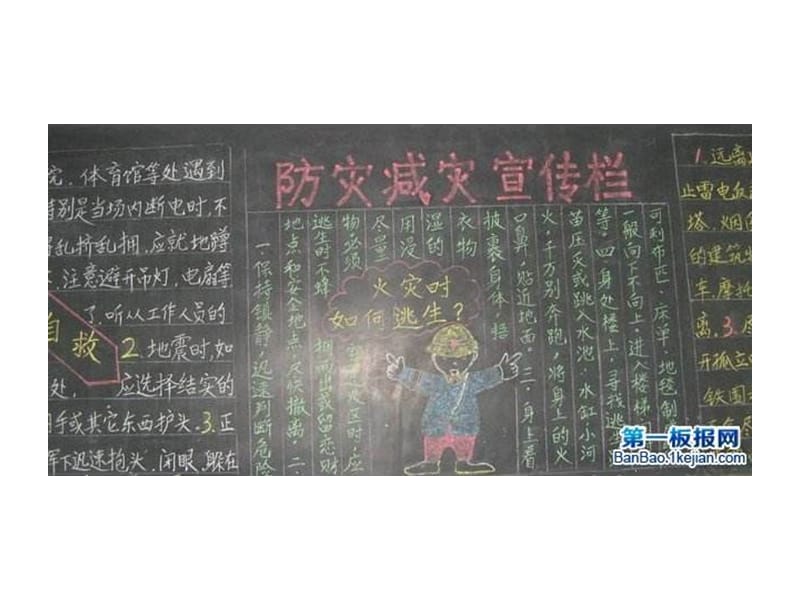 体育馆等处遇到
特别是当场内断电时,不
乱挤乱拥,应就地蹲
注意避开吊灯,电扇等
了,听从工作人员的
自救
2.地震时,如
处,应选择结实的
用手或其它东西护头.3.正
下迅速抱头,闭眼,躲在
防灾减灾宣传栏
火灾时
如何逃生?
一、保持镇静,迅速判断危险
地点和安全地点,尽快撤离。二、
逃生时不蜂拥而出或留恋财
物,必须 火区时,应
尽量
用浸
湿的
衣物
披裹身体,捂
口鼻,贴近地面。三、身上着
火,千万别奔跑,将身上的火
苗压灭或跳入水池、水缸、小河
等。四、身处楼上,寻找逃
一般向下不向上,进入楼梯
可利布匹、床单、地毯制
1.远离
止雷电
塔,烟囱
的建筑物
车,摩托
离.3.
开孤立的
铁围
第一板报网
BanBao.1kejian.com